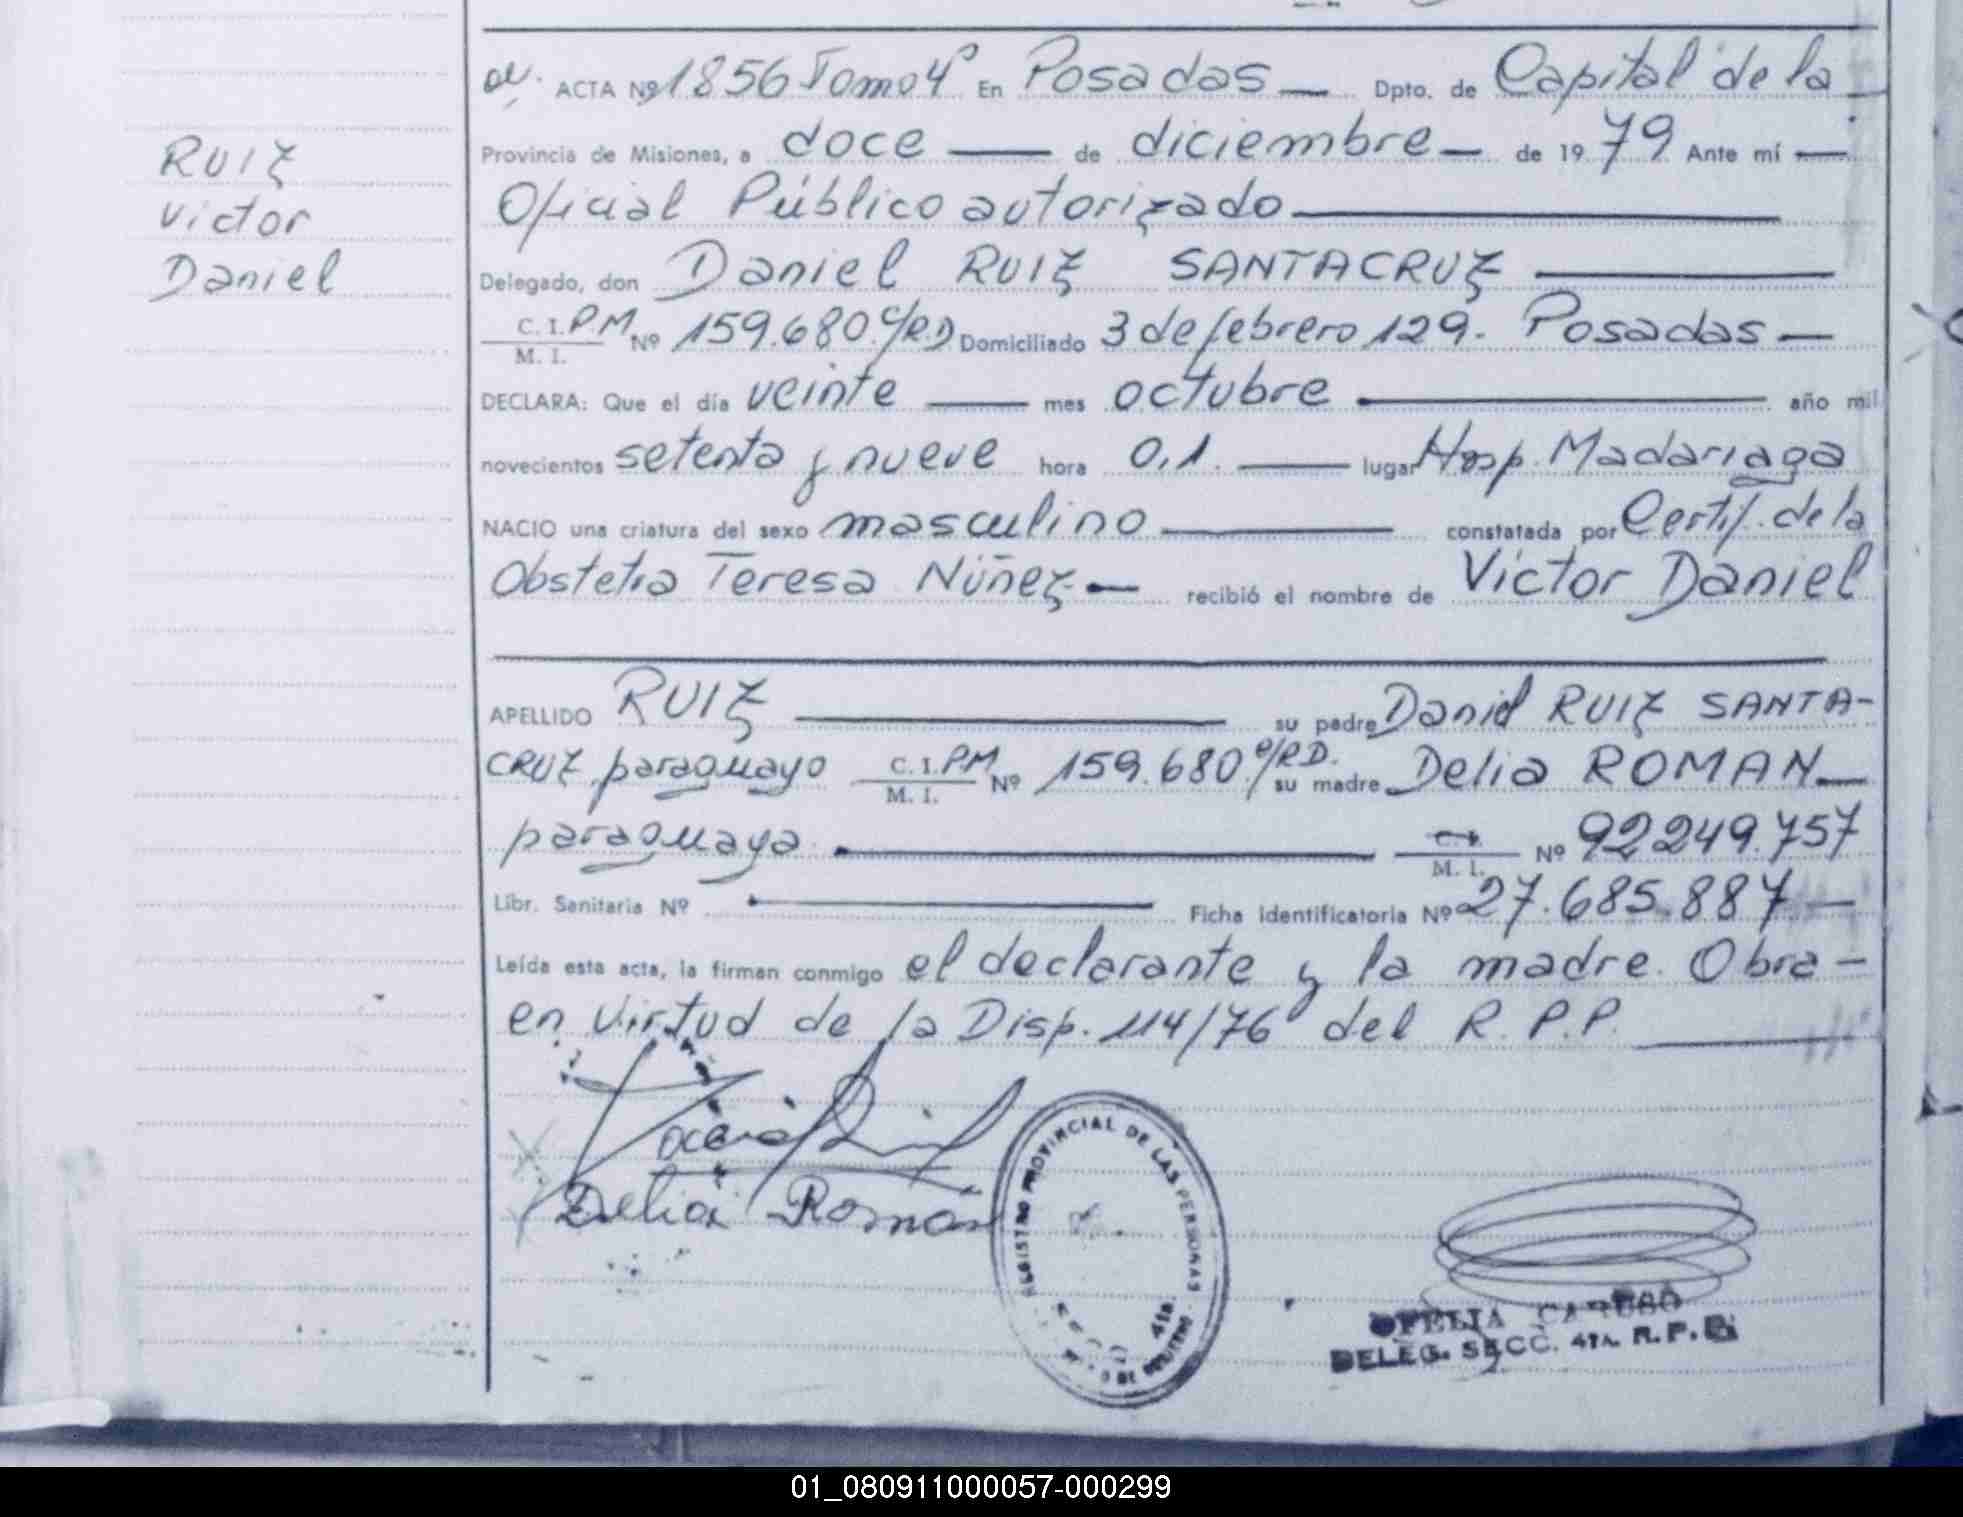 ACTA Nº 1856 Tomo 4º En Posadas — Dpto. de Capital de la
Provincia de Misiones, a doce — de diciembre — de 19 79 Ante mí —
RUIZ
Victor
Daniel
Oficial Público autorizado
Delegado, don Daniel RUIZ SANTACRUZ
C. I. P.M. Nº 159.680 c/R.D Domiciliado 3 de febrero 129. Posadas —
M. I.
DECLARA: Que el día veinte — mes octubre — año mil
novecientos setenta y nueve hora 0,1. — lugar Hosp. Madariaga
NACIO una criatura del sexo masculino — constatada por Certif. de la
Obstetra Teresa Núñez — recibió el nombre de Víctor Daniel
APELLIDO RUIZ — su padre Daniel RUIZ SANTA-
CRUZ paraguayo C. I. PM Nº 159.680 c/RD. su madre Delia ROMAN —
M. I.
paraguaya — Nº 92249.757
M. I.
Libr. Sanitaria Nº — Ficha Identificatoria Nº 27.685.887 —
Leída esta acta, la firman conmigo el declarante y la madre. Obra —
en virtud de la Disp. 114/76 del R. P. P.
Delia Román
REGISTRO PROVINCIAL DE LAS PERSONAS
4ta.
OFELIA CARUSO
DELEG. SECC. 4TA. R.P.P.
01_080911000057-000299